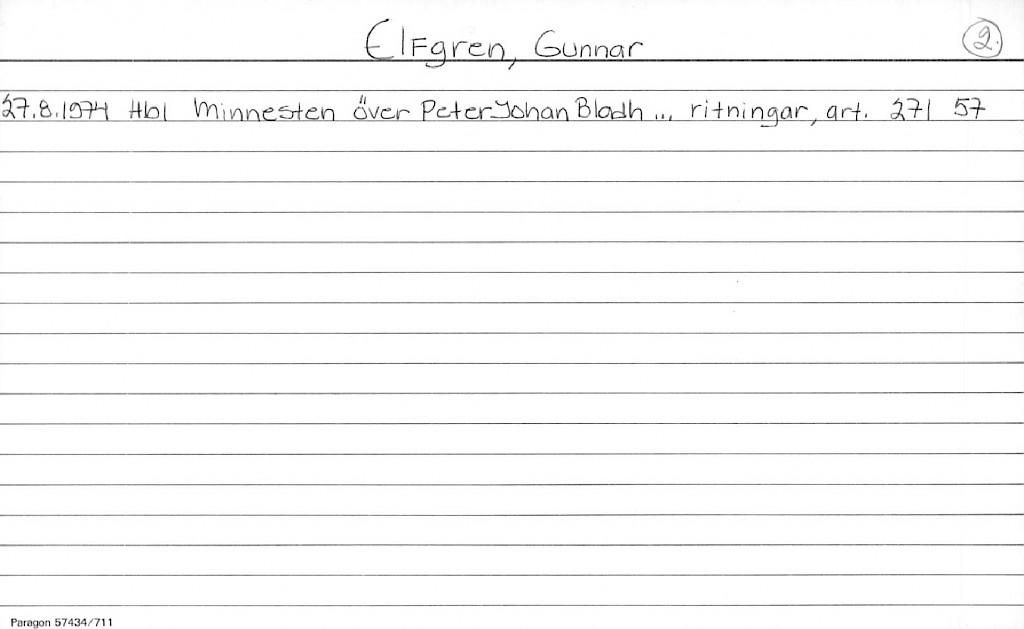 Elfgren, Gunnar 2.
27.8.1974 Hbl Minnesten över Peter Johan Bladh ... ritningar, art. 271 57
Paragon 57434/711